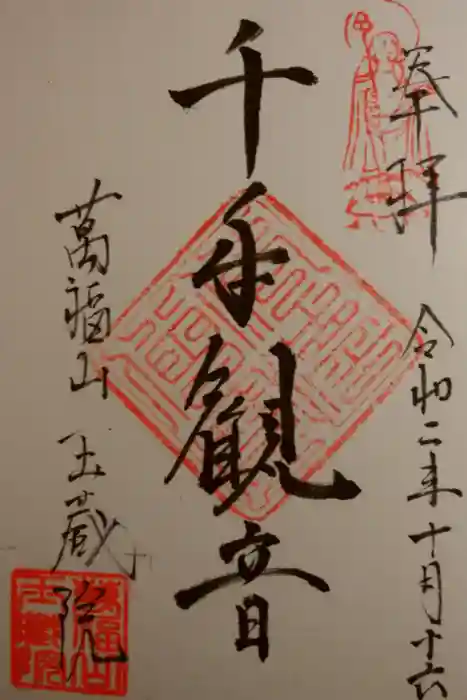 奉拝
令和二年十月十六日
千手観音
萬福山 玉蔵院